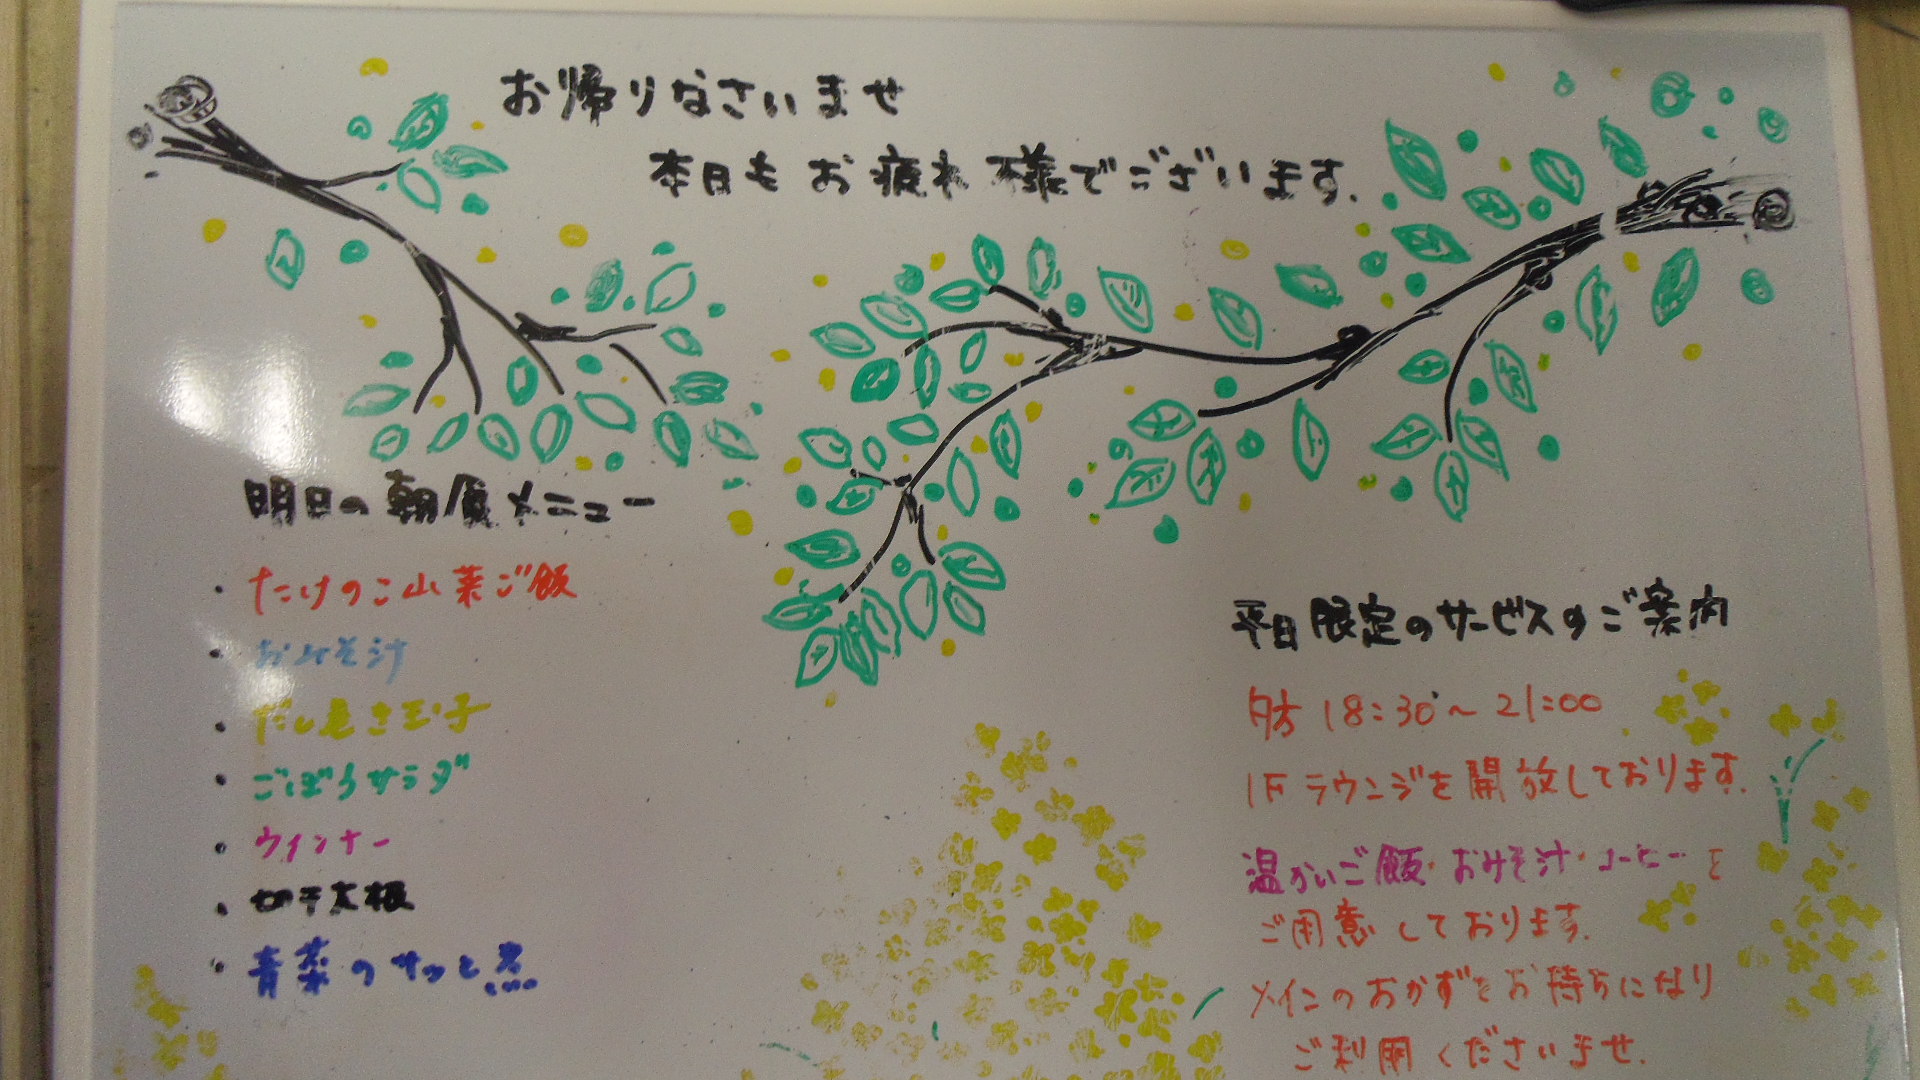 お帰りなさいませ
本日もお疲れ様でございます.
明日の朝食メニュー
・たけのこ山菜ご飯
・おみそ汁
・だし巻き玉子
・ごぼうサラダ
・ウインナー
・切干大根
・青菜のサッと煮
平日限定のサービスのご案内
夕方 18:30～21:00
1Fラウンジを開放しております.
温かいご飯・おみそ汁・コーヒーを
ご用意しております.
メインのおかずをお持ちになり
ご利用くださいませ.